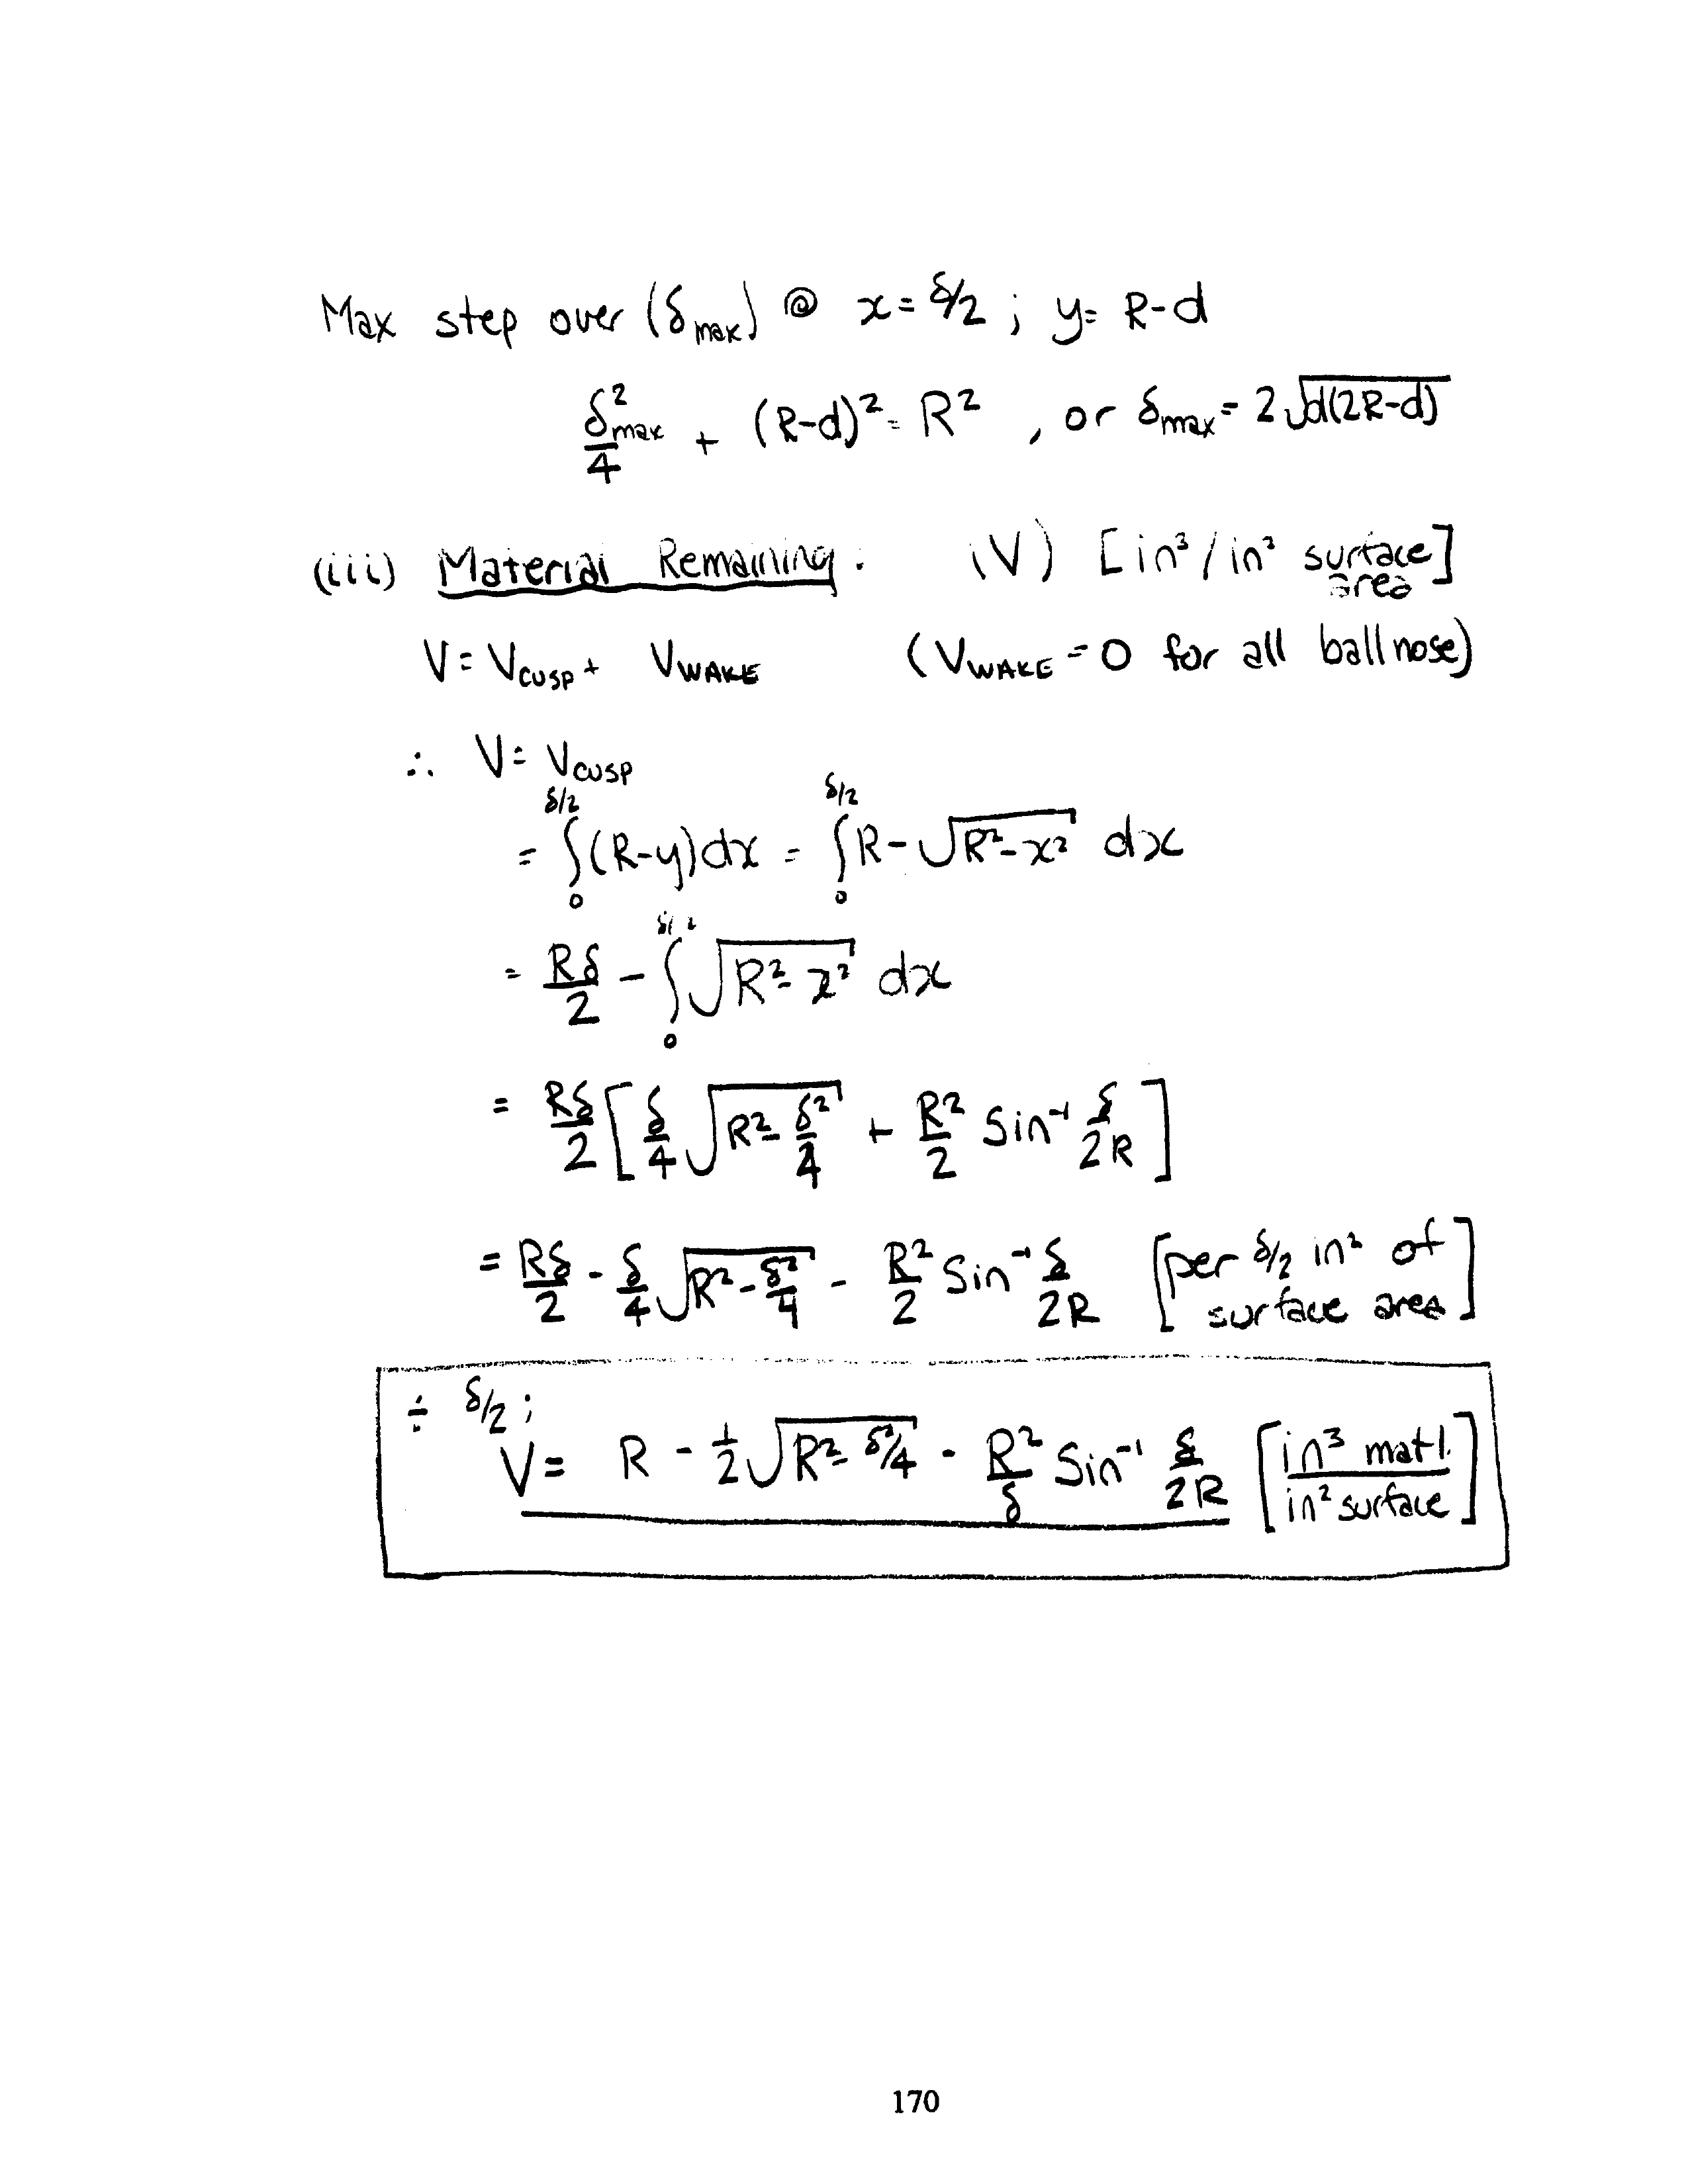 Max step over (δmax) @ x = δ/2 ; y = R-d
δ²max/4 + (R-d)² = R² , or δmax = 2√d(2R-d)
(iii) Material Remaining. (V) [in³/in² surface area]
V = Vcusp + VWAKE (VWAKE = 0 for all ball nose)
∴ V = Vcusp
= ∫₀^δ/2 (R-y)dx = ∫₀^δ/2 R - √(R²-x²) dx
= Rδ/2 - ∫₀^δ/2 √(R²-x²) dx
= Rδ/2 [δ/4 √(R²-δ²/4) + R²/2 Sin⁻¹ δ/2R]
= Rδ/2 - δ/4 √(R²-δ²/4) - R²/2 Sin⁻¹ δ/2R [per δ/2 in² of surface area]
÷ δ/2 ;
V = R - 1/2 √(R²-δ²/4) - R²/δ Sin⁻¹ δ/2R [in³ mat'l. / in² surface]
170